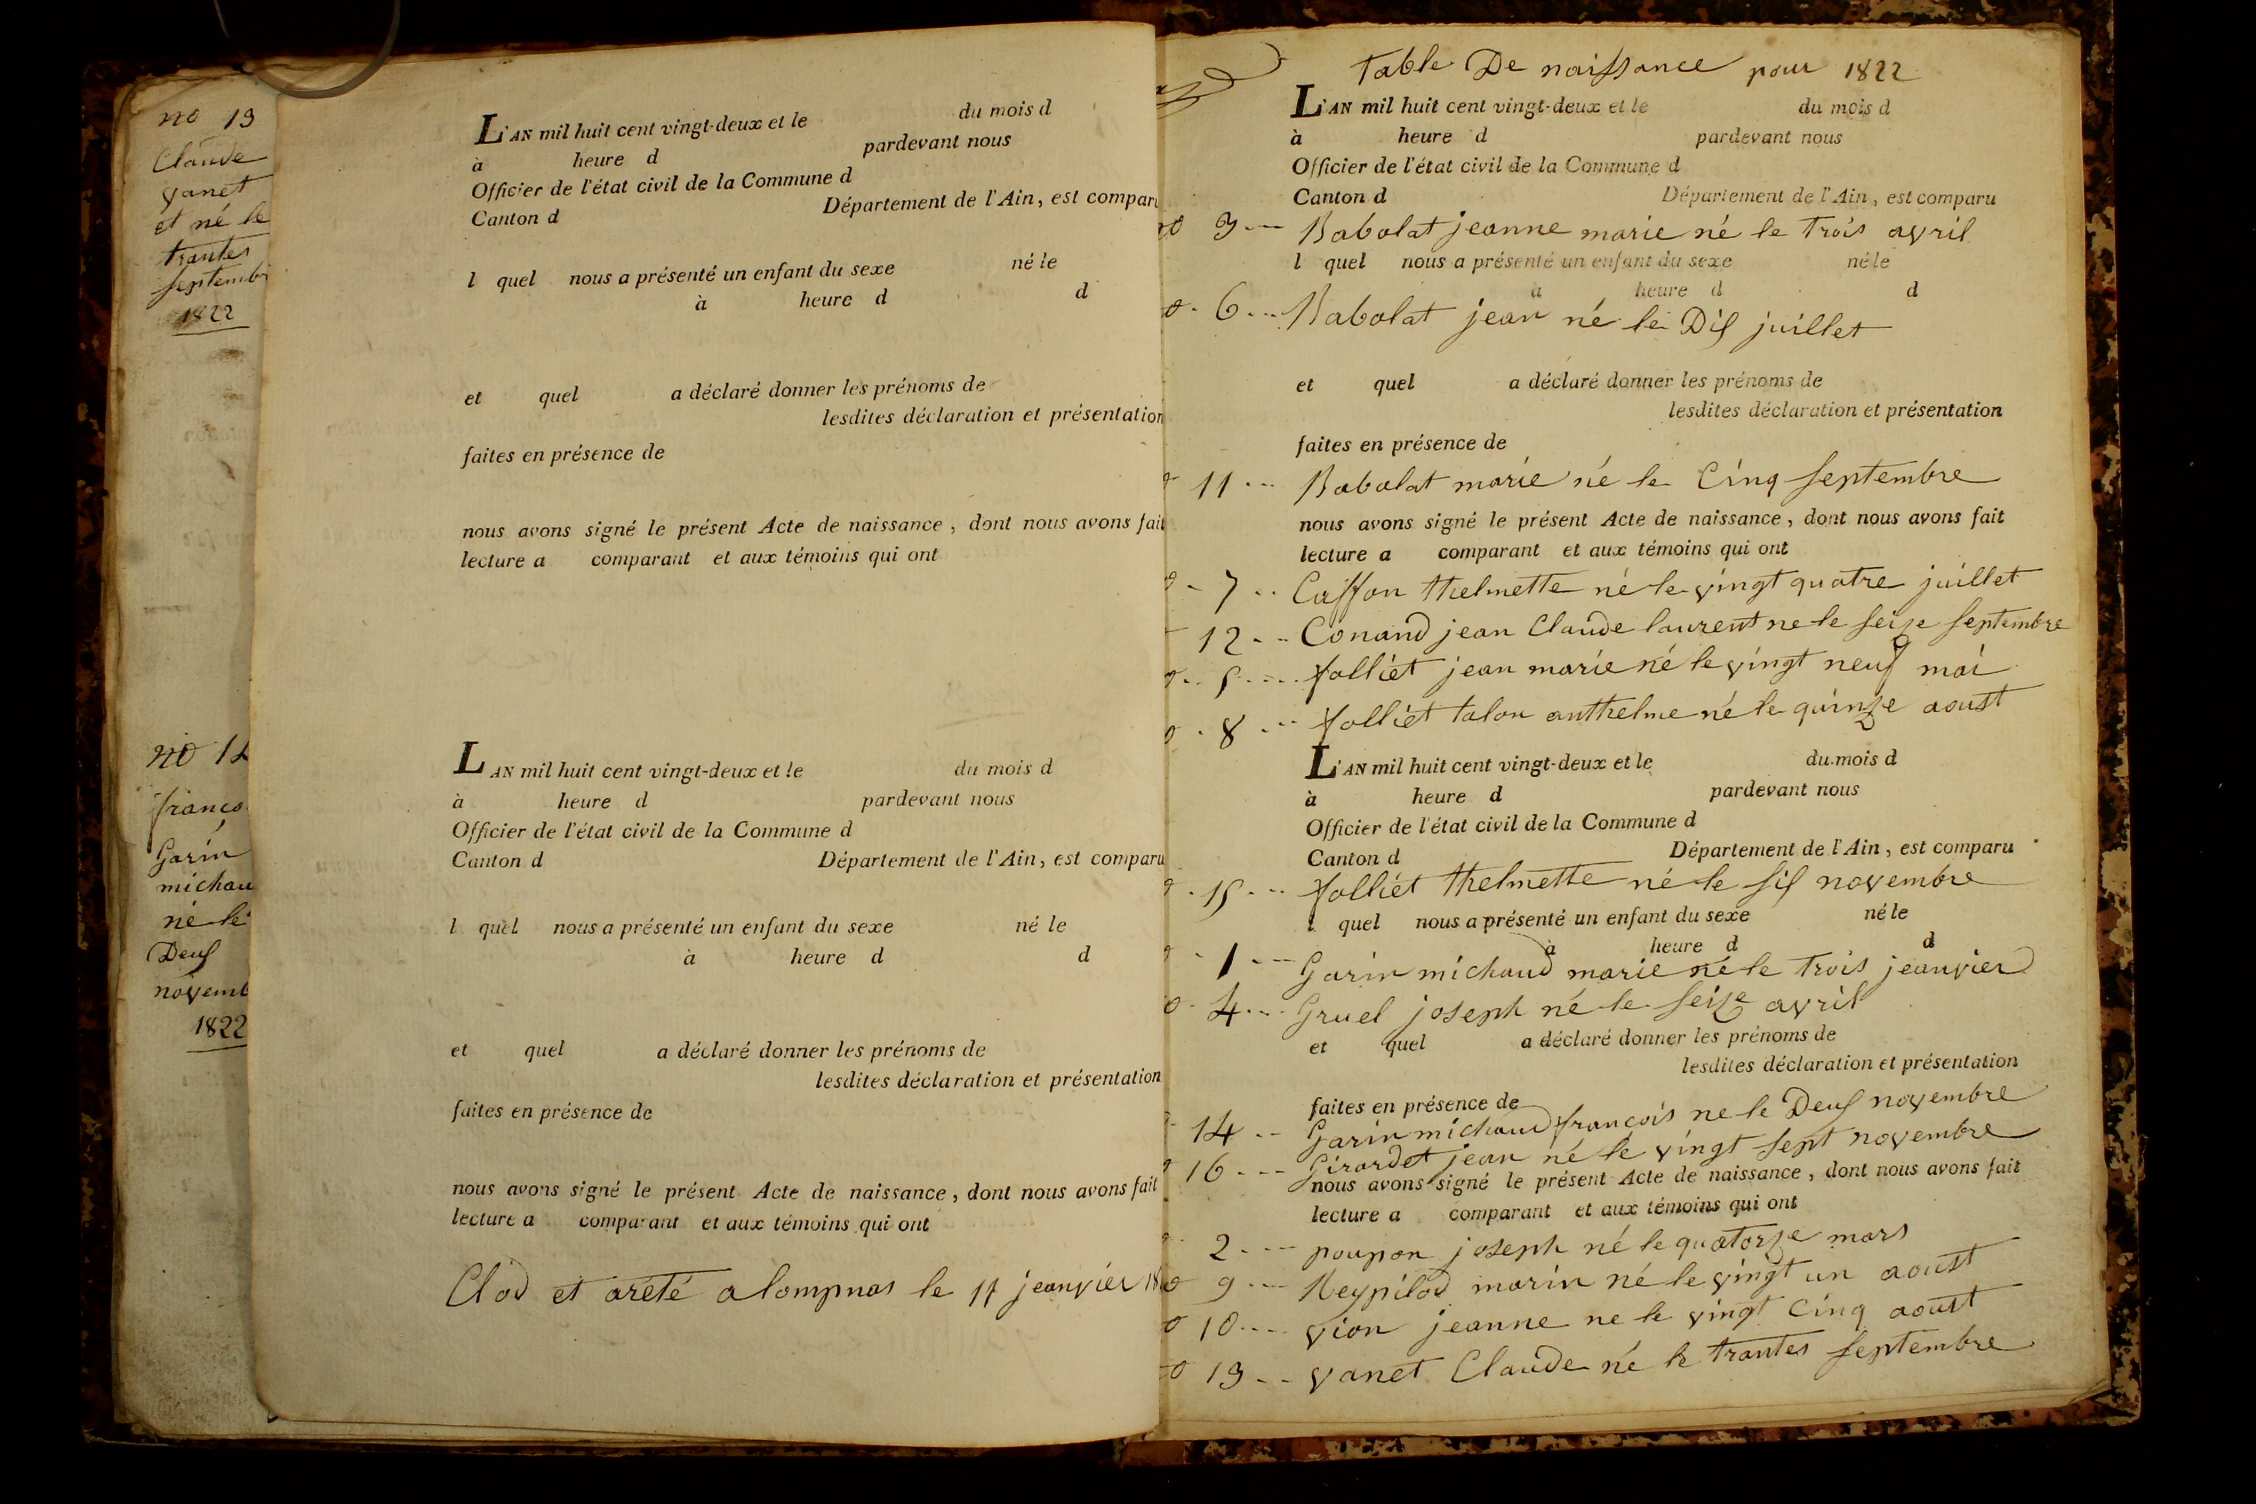 no 13
Claude
vanet
et né le
trantes
septemb
1822
no 14
franço
Garin
michau
né le
Deux
novemb
1822
L'AN mil huit cent vingt-deux et le du mois d
à heure d pardevant nous
Officier de l'état civil de la Commune d
Canton d Département de l'Ain, est comparu
l quel nous a présenté un enfant du sexe né le
à heure d d
et quel a déclaré donner les prénoms de
lesdites déclaration et présentation
faites en présence de
nous avons signé le présent Acte de naissance, dont nous avons fait
lecture a comparant et aux témoins qui ont
L'AN mil huit cent vingt-deux et le du mois d
à heure d pardevant nous
Officier de l'état civil de la Commune d
Canton d Département de l'Ain, est comparu
l quel nous a présenté un enfant du sexe né le
à heure d d
et quel a déclaré donner les prénoms de
lesdites déclaration et présentation
faites en présence de
nous avons signé le présent Acte de naissance, dont nous avons fait
lecture a comparant et aux témoins qui ont
Clod et arété a lompnas le 11 jeanvier 18
Table De naissance pour 1822
L'AN mil huit cent vingt-deux et le du mois d
à heure d pardevant nous
Officier de l'état civil de la Commune d
Canton d Département de l'Ain, est comparu
no 3 Babolat jeanne marie né le trois avril
l quel nous a présenté un enfant du sexe né le
à heure d d
o 6 Babolat jean né le Dix juillet
et quel a déclaré donner les prénoms de
lesdites déclaration et présentation
faites en présence de
o 11 Babolat marie né le Cinq septembre
nous avons signé le présent Acte de naissance, dont nous avons fait
lecture a comparant et aux témoins qui ont
o 7 Caffon thelmette né le vingt quatre juillet
12 Conand jean Claude laurent ne le seize septembre
o 5 folliet jean marie né le vingt neuf mai
o 8 folliet talon anthelme né le quinze aoust
L'AN mil huit cent vingt-deux et le du mois d
à heure d pardevant nous
Officier de l'état civil de la Commune d
Canton d Département de l'Ain, est comparu
o 15 folliet thelmette né le six novembre
l quel nous a présenté un enfant du sexe né le
à heure d d
o 1 Garin michaud marie né le trois jeanvier
o 4 Gruel joseph né le seize avril
et quel a déclaré donner les prénoms de
lesdites déclaration et présentation
faites en présence de
14 Garin michaud françois ne le Deux novembre
o 16 Girardet jean né le vingt sept novembre
nous avons signé le présent Acte de naissance, dont nous avons fait
lecture a comparant et aux témoins qui ont
o 2 poupon joseph né le quatorze mars
o 9 Reypilod marin né le vingt un aoust
o 10 vion jeanne ne le vingt cinq aoust
o 13 vanet Claude né le trantes septembre